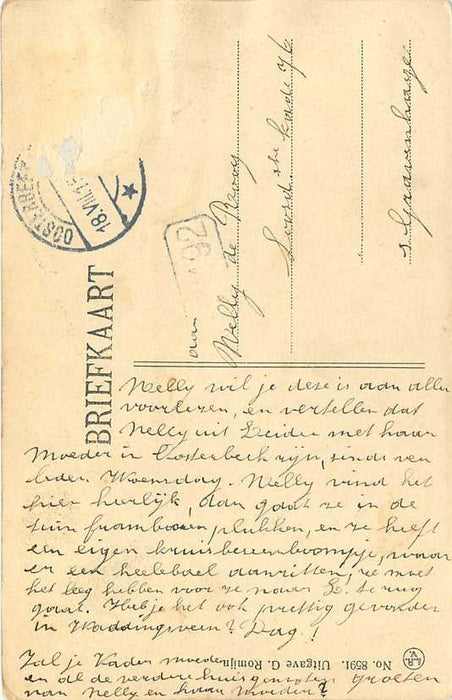 BRIEFKAART
OOSTERBEEK
18.VIII.15
192
aan
Nelly de Rooy
Noord kade 76
s Gravenhaage
Nelly wil je deze is aan allen
voorlezen, en vertellen dat
Nelly uit Leiden met haar
Moeder in Oosterbeek zijn, sinds ver
leden Woensdag. Nelly vind het
hier heerlijk, dan gaat ze in de
tuin frambozen plukken, en ze heeft
een eigen kruisbezenboompje, waar
er een heeleboel aanzitten, ze moet
het leeg hebben voor ze naar L. terug
gaat. Heb je het ook prettig gevonden
in Waddingsveen? Dag!
Zal je Vader moeder
en al de verdere huisgenooten groeten
van Nelly en haar moeder?
No. 8591. Uitgave G. Romijn